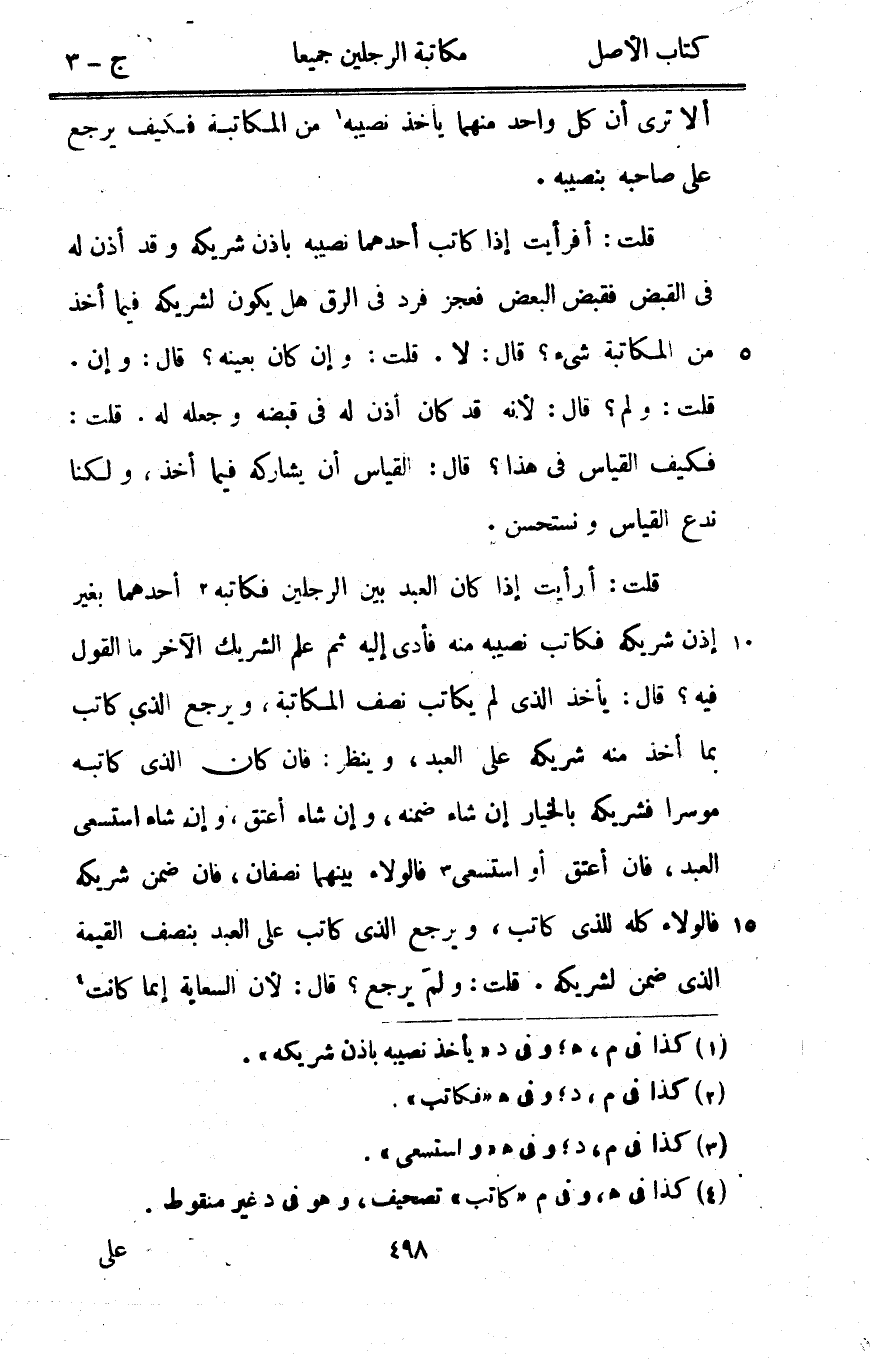 كتاب الأصل مكاتبة الرجلين جميعا ج - ٣
ألا ترى أن كل واحد منهما يأخذ نصيبه١ من المكاتبة فكيف يرجع
على صاحبه بنصيبه .
قلت : أفرأيت إذا كاتب أحدهما نصيبه باذن شريكه و قد أذن له
فى القبض فقبض البعض فعجز فرد فى الرق هل يكون لشريكه فيما أخذ
٥ من المكاتبة شىء ؟ قال : لا . قلت : و إن كان بعينه ؟ قال : و إن .
قلت : و لم ؟ قال : لأنه قد كان أذن له فى قبضه و جعله له . قلت :
فكيف القياس فى هذا ؟ قال : القياس أن يشاركه فيما أخذ ، و لكنا
ندع القياس و نستحسن .
قلت : أرأيت إذا كان العبد بين الرجلين فكاتبه٢ أحدهما بغير
١٠ إذن شريكه فكاتب نصيبه منه فأدى إليه ثم علم الشريك الآخر ما القول
فيه ؟ قال : يأخذ الذى لم يكاتب نصف المكاتبة ، و يرجع الذي كاتب
بما أخذ منه شريكه على العبد ، و ينظر : فان كان الذى كاتبه
موسرا فشريكه بالخيار إن شاء ضمنه ، و إن شاء أعتق ، و إن شاء استسعى
العبد ، فان أعتق أو استسعى٣ فالولاء بينهما نصفان ، فان ضمن شريكه
١٥ فالولاء كله للذى كاتب ، و يرجع الذى كاتب على العبد بنصف القيمة
الذى ضمن لشريكه . قلت : و لمَ يرجع ؟ قال : لأن السعاية إنما كانت٤
(١) كذا فى م ، ه ؛ و فى د « يأخذ نصيبه باذن شريكه » .
(٢) كذا فى م ، د ؛ و فى ه « فكاتب » .
(٣) كذا فى م ، د ؛ و فى ه « و استسعى » .
(٤) كذا فى ه ، و فى م « كاتب » تصحيف ، و هو فى د غير منقوط .
٤٩٨ على